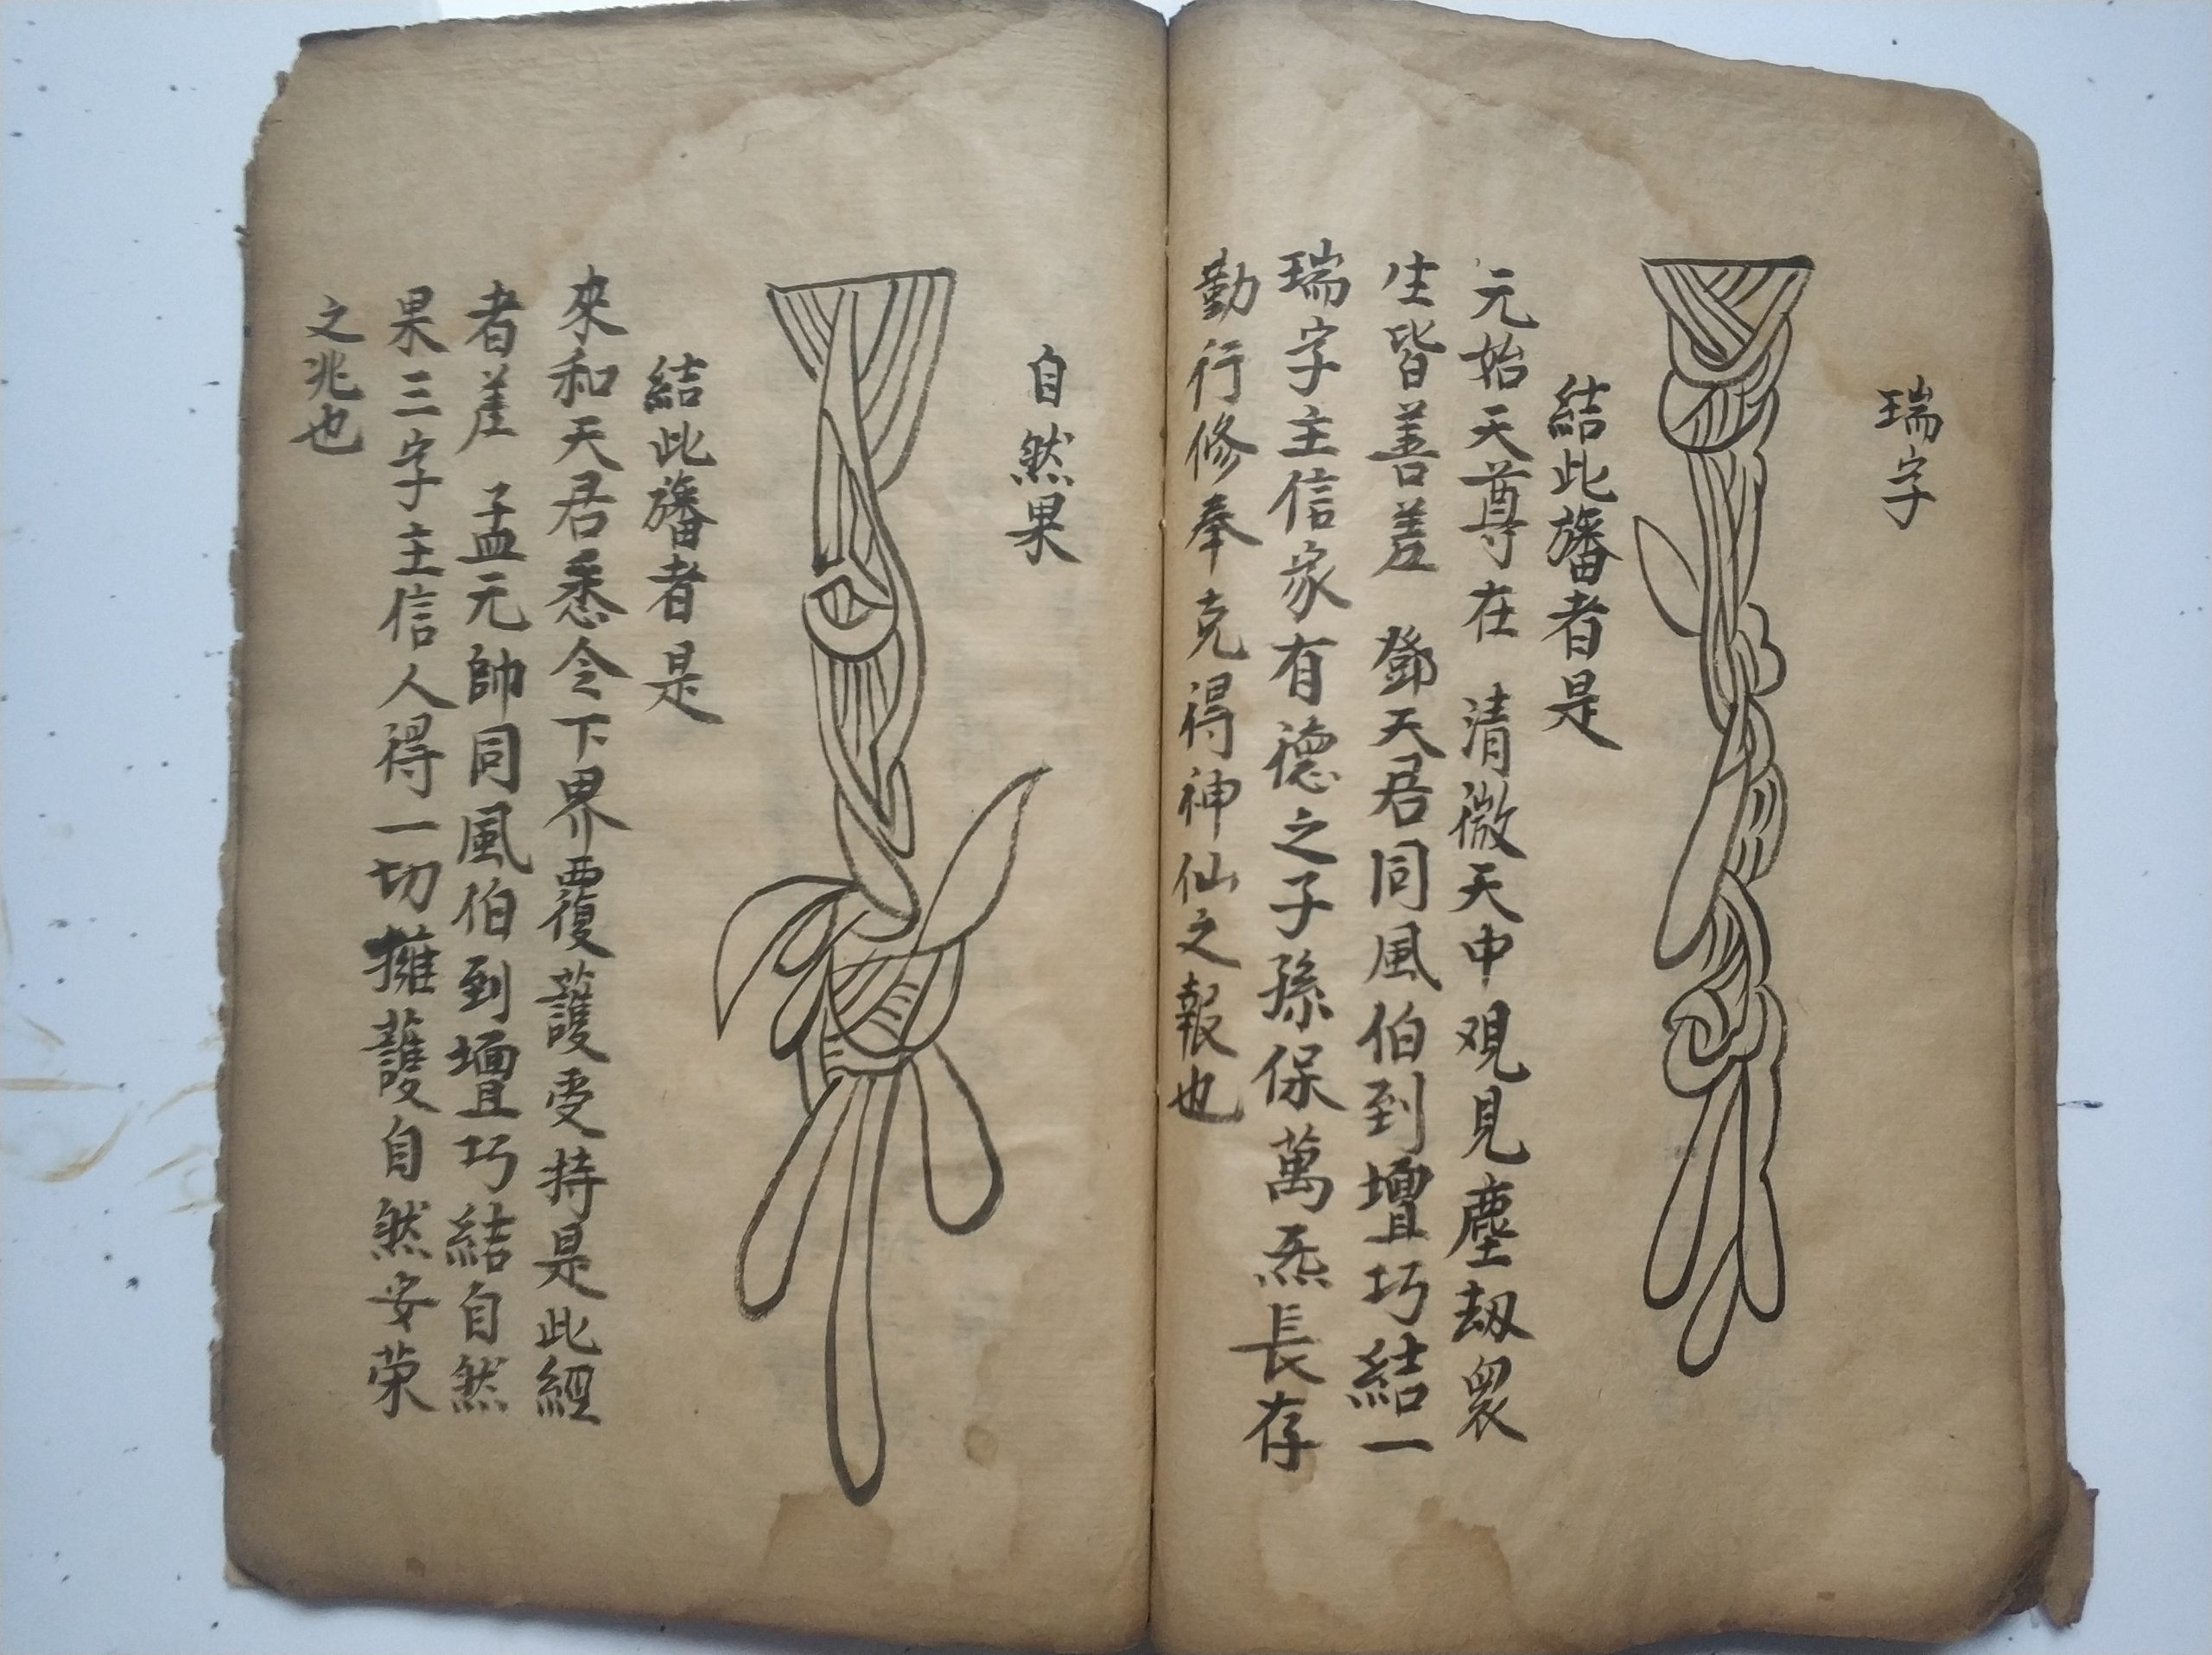 瑞字
結此旛者是
元始天尊在 清微天中觀見塵劫衆
生皆善差 鄧天君同風伯到壇巧結一
瑞字主信家有德之子孫保萬炁長存
勤行修奉克得神仙之報也
自然果
結此旛者是
來和天君悉令下界覆護受持是此經
者差 孟元帥同風伯到壇巧結自然
果三字主信人得一切擁護自然安荣
之兆也